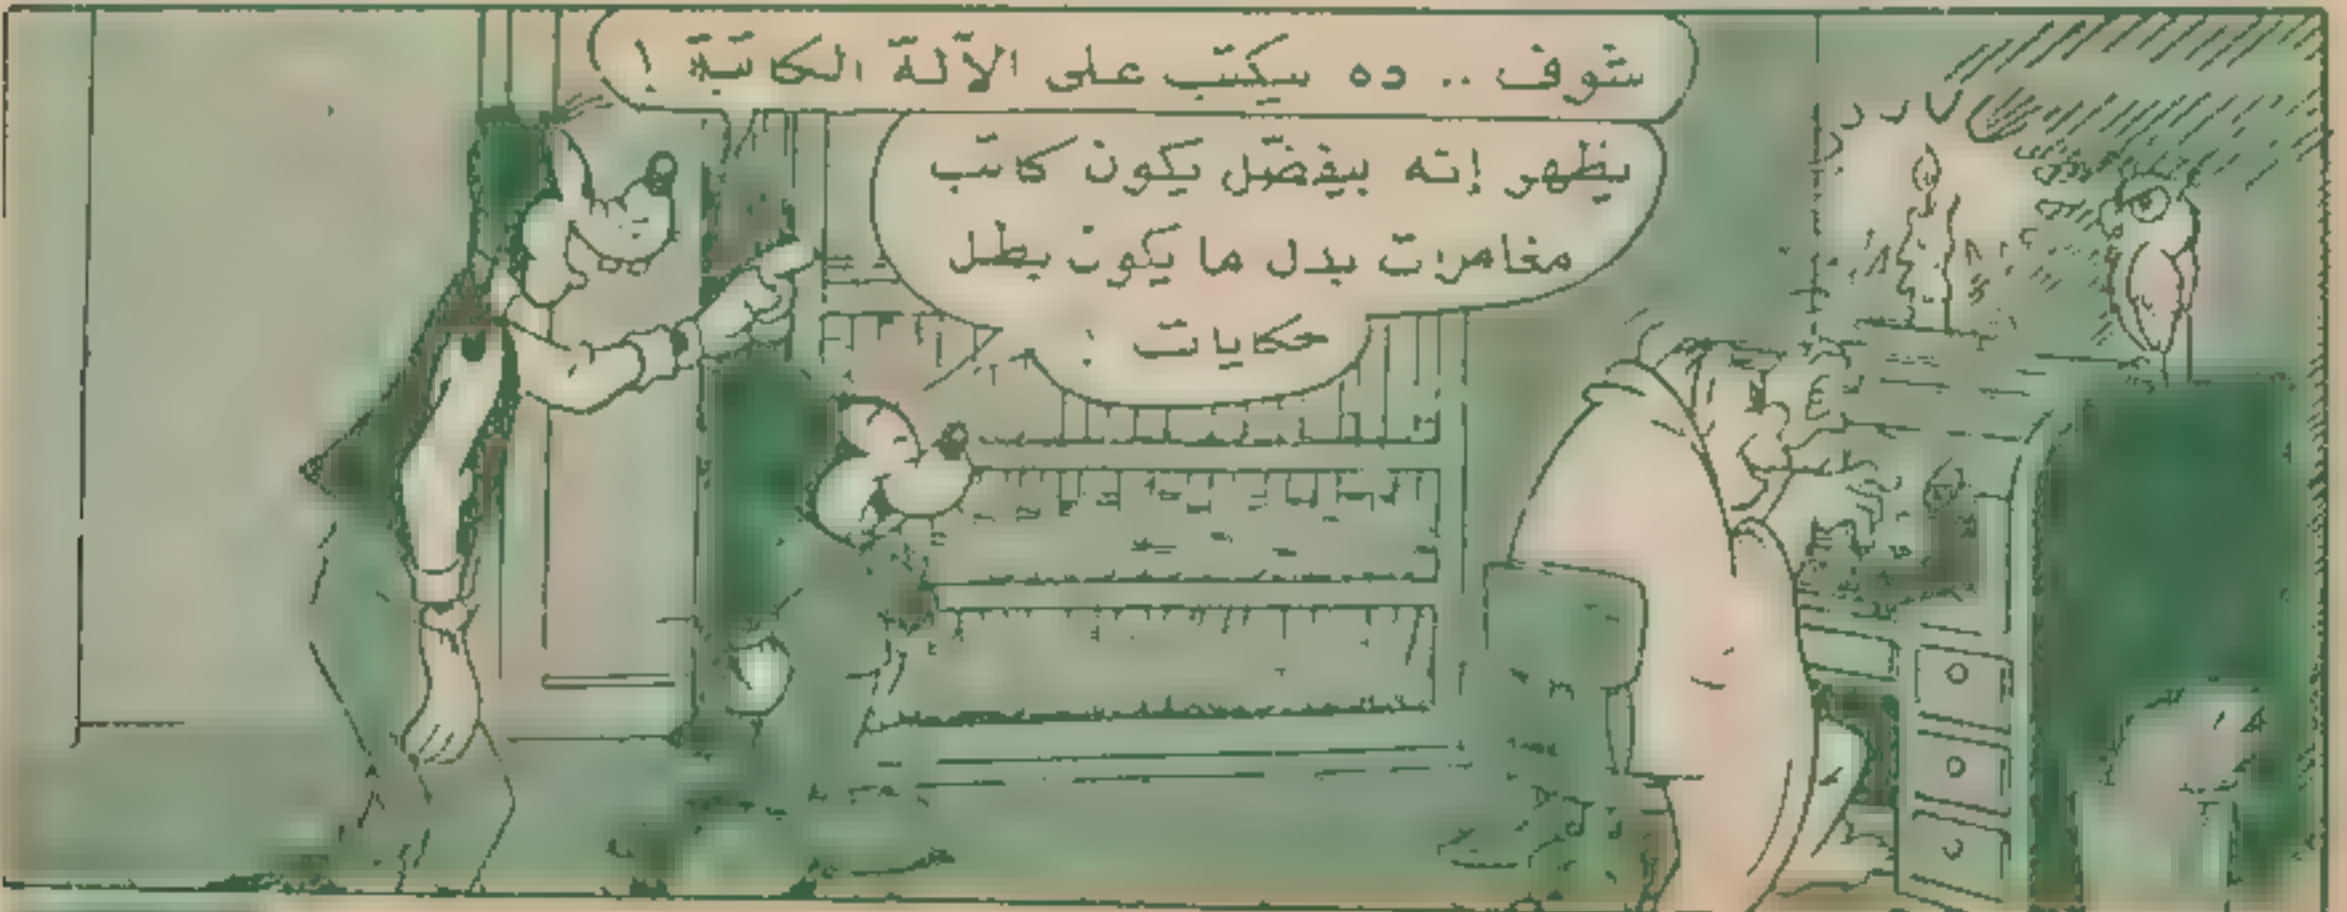 شوف .. ده بيكتب على الآلة الكاتبة !
يظهر إنه بيفضّل يكون كاتب
مغامرات بدل ما يكون بطل
حكايات !